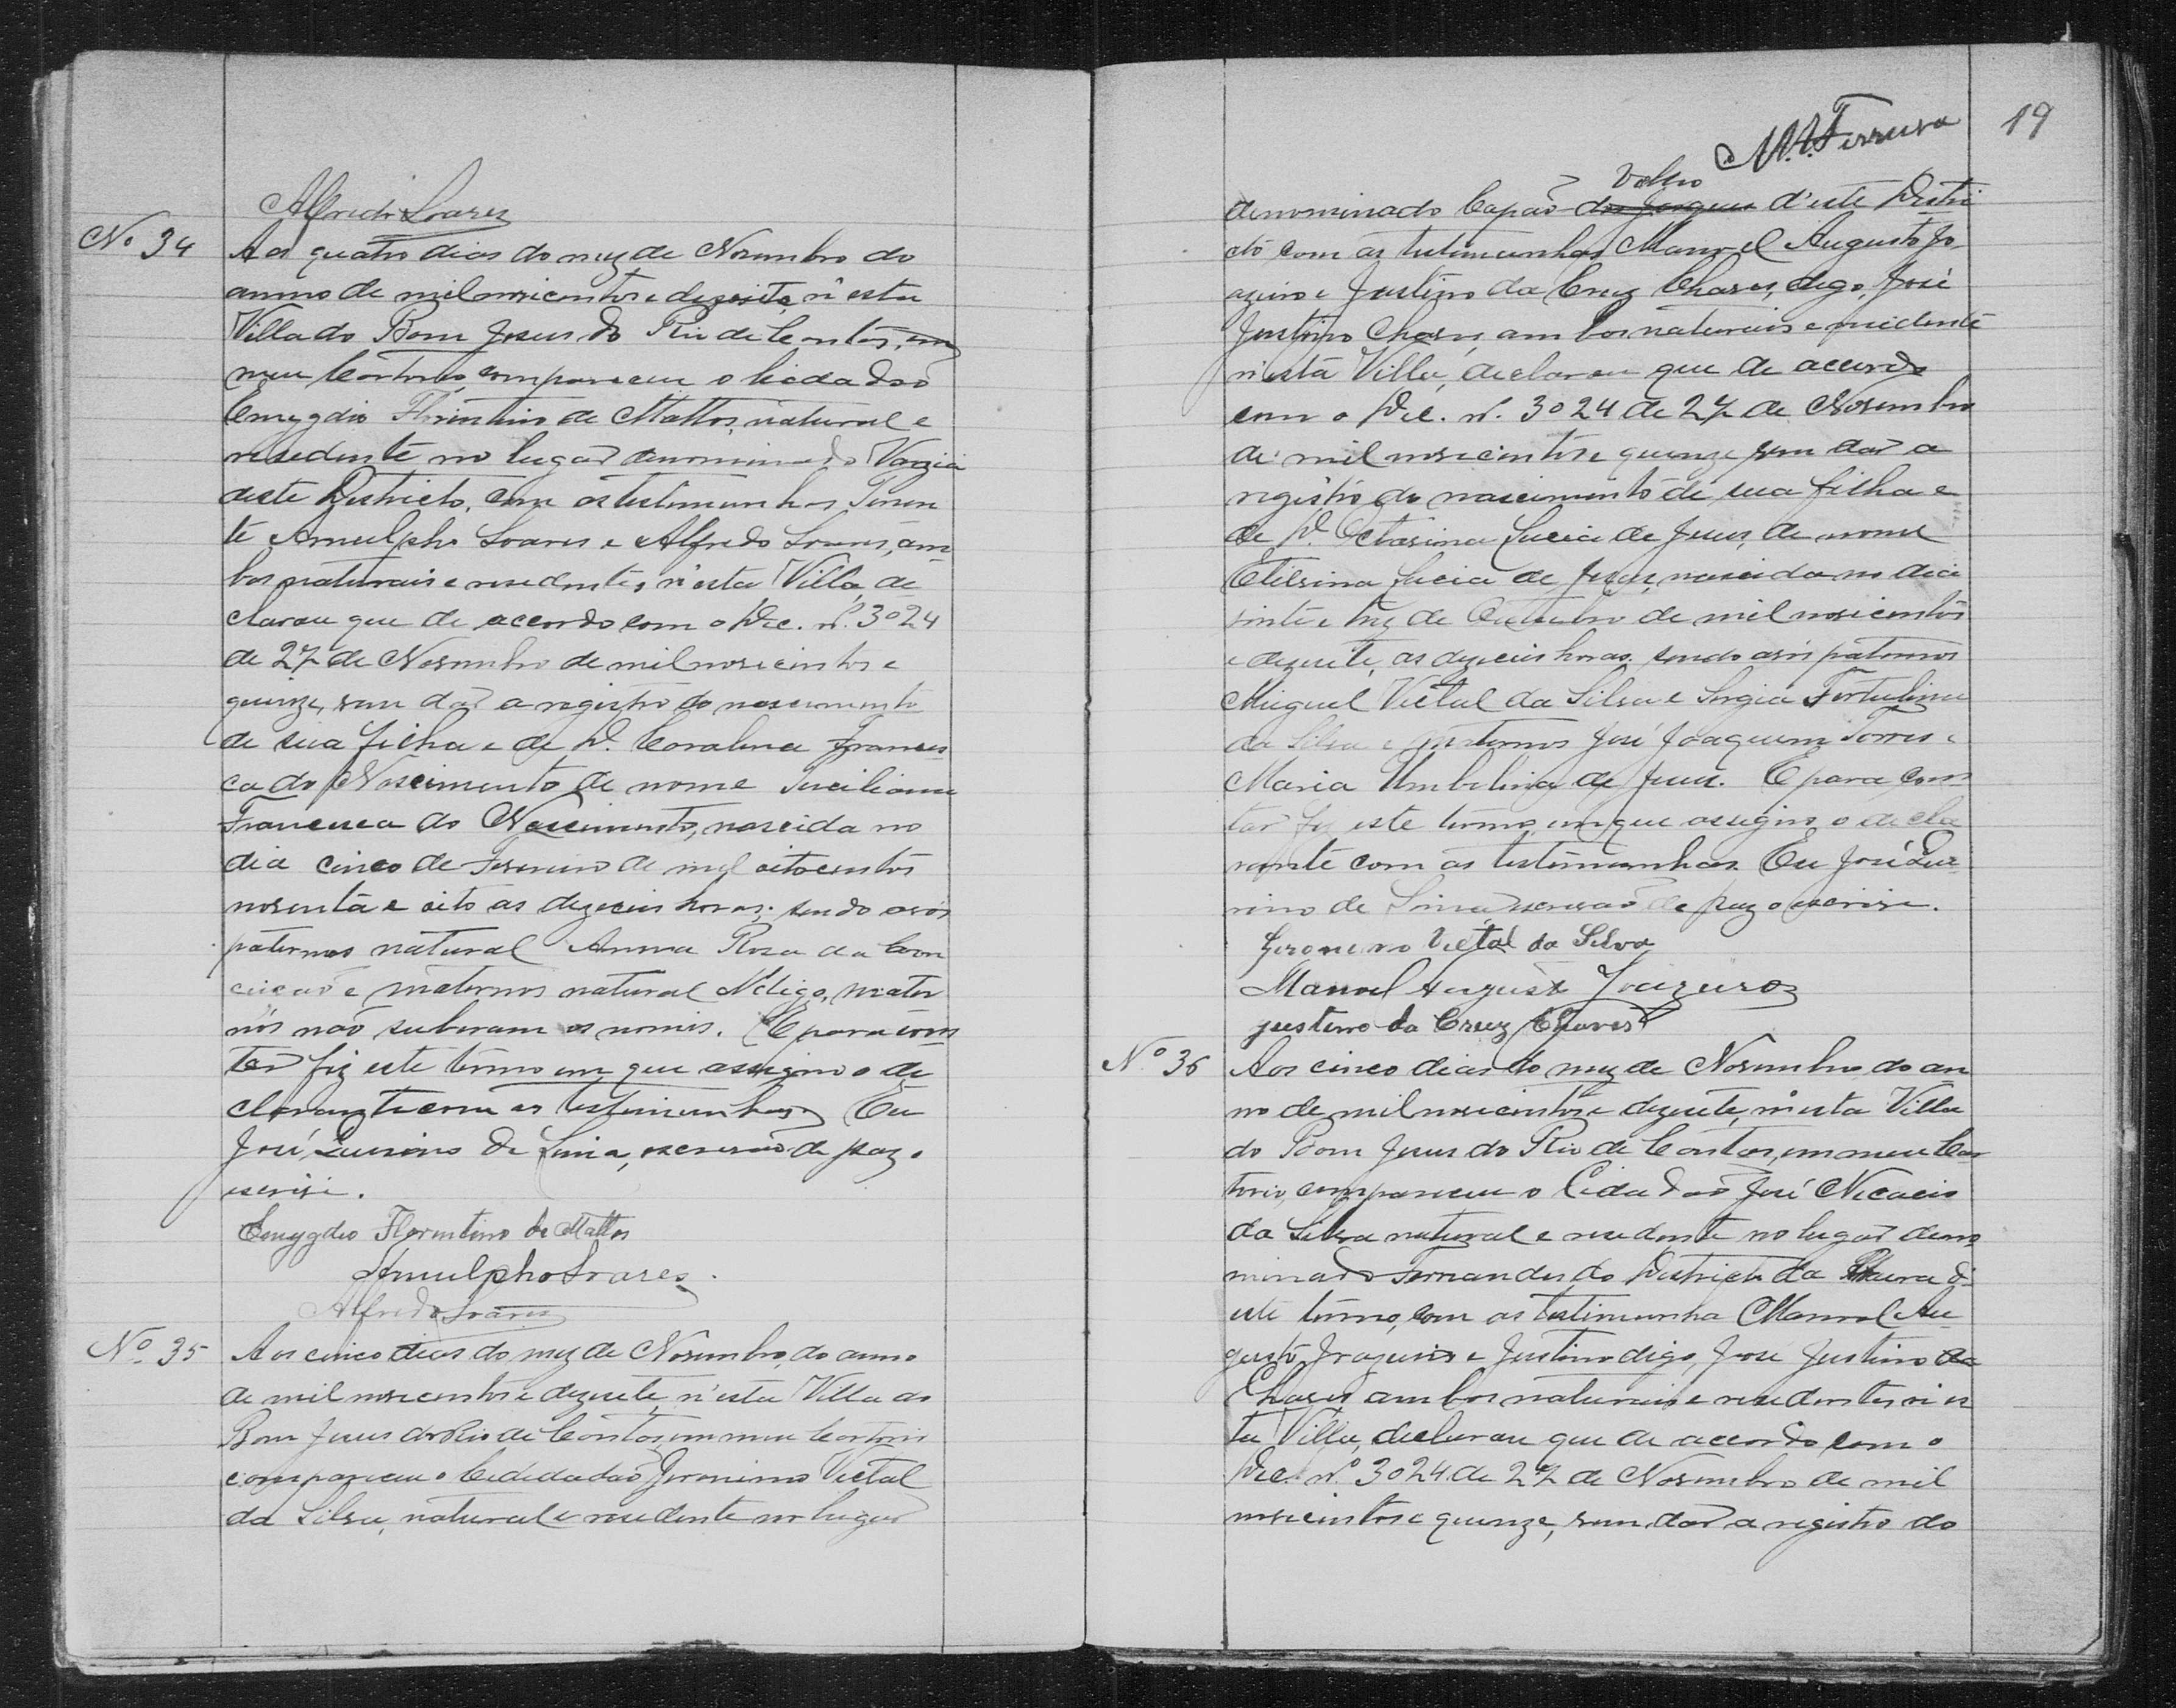 Alfredo Soares
Nº 34 Aos quatro dias do mez de Novembro do
anno de mil novicentos e dezesete, n'esta
Villa do Bom Jesus do Rio de Contas, em
meu Cartorio, compareceu o Cidadão
Emygdio Florintino de Mattos, natural e
residente no lugar denominado Varzia
deste Districto, com as testimunhas Tenen
te Arnulpho Soares e Alfredo Soares, am
bos naturais e residentes n'esta Villa, de
clarou que de accordo com o Dec. nº. 3024
de 27 de Novembro de mil novicentos e
quinze, vem dar a registro do nascimento
de sua filha e de D. Coralina Francis
ca do Nascimento de nome
Francisca do Nascimento, nascida no
dia cinco de Fevereiro de mil oitocentos
noventa e oito as dezeceis horas; sendo avós
paternos natural Anna Rosa da Con
ceição e maternos natural N digo, mater
nos não suberam os nomis. E para cons
tar fiz este termo em que assigno o de
clarante com as testimunhas Eu
José Quirino de Lima, escrivão de paz o
escrivi.
Emygdio Florentino de Mattos
Arnulpho Soares.
Alfredo Soares
Nº 35 Aos cinco dias do mez de Novembro, do anno
de mil novicentos e dezesete, n'esta Villa do
Bom Jesus do Rio de Contas, em meu Cartorio
compareceu o Cedidadão Jeronimo Victal
da Silva, natural e residente no lugar
M. A. Ferreira 19
Velho
denominado Capão d'este Distri
cto com as testimunhas Manoel Augusto Jo
azeiro e Justino da Cruz Chaves, digo, José
Justino Chaves, ambos naturais e residente
n'esta Villa, declarou que de accordo
com o Dec. nº. 3024 de 27 de Novembro
de mil novicentos e quinze vem dar a
registro do nascimento de sua filha e
de D. Octavina Lucia de Jesus, de nome
Etilvina Lucia de Jesus, nascida no dia
vinte e trez de Outubro de mil novicentos
e dezesete, as dezeceis horas. sendo avós paternos
Miguel Victal da Silva e Sergia Fortulina
da Silva e maternos José Joaquim Torres e
Maria Umbelina de Jesus. E para cons
tar fiz este termo em que assigno o decla
rante com as testemunhas. Eu José Qui
rino de Lima escrivão de paz o escrivi.
Jeronimo Victal da Silva
Manoel Augusto Joazeiro
justino da Cruz Chaves
Nº 36 Aos cinco dias do mez de Novembro do an
no de mil novicentos e dezesete, n'esta Villa
do Bom Jesus do Rio de Contas, em meu Car
torio, compareceu o Cidadão José Nicacio
da Silva natural e residente no lugar deno
minado Fernandes do Districto da d'
este termo, com as testimunha Manoel Au
gusto Joazeiro e Justino digo, José Justino da
Chaves ambos naturais e residentes n'es
ta Villa, declarou que de accordo com o
Dec. nº 3024 de 27 de Novembro de mil
novicentos e quinze, vem dar a registro do